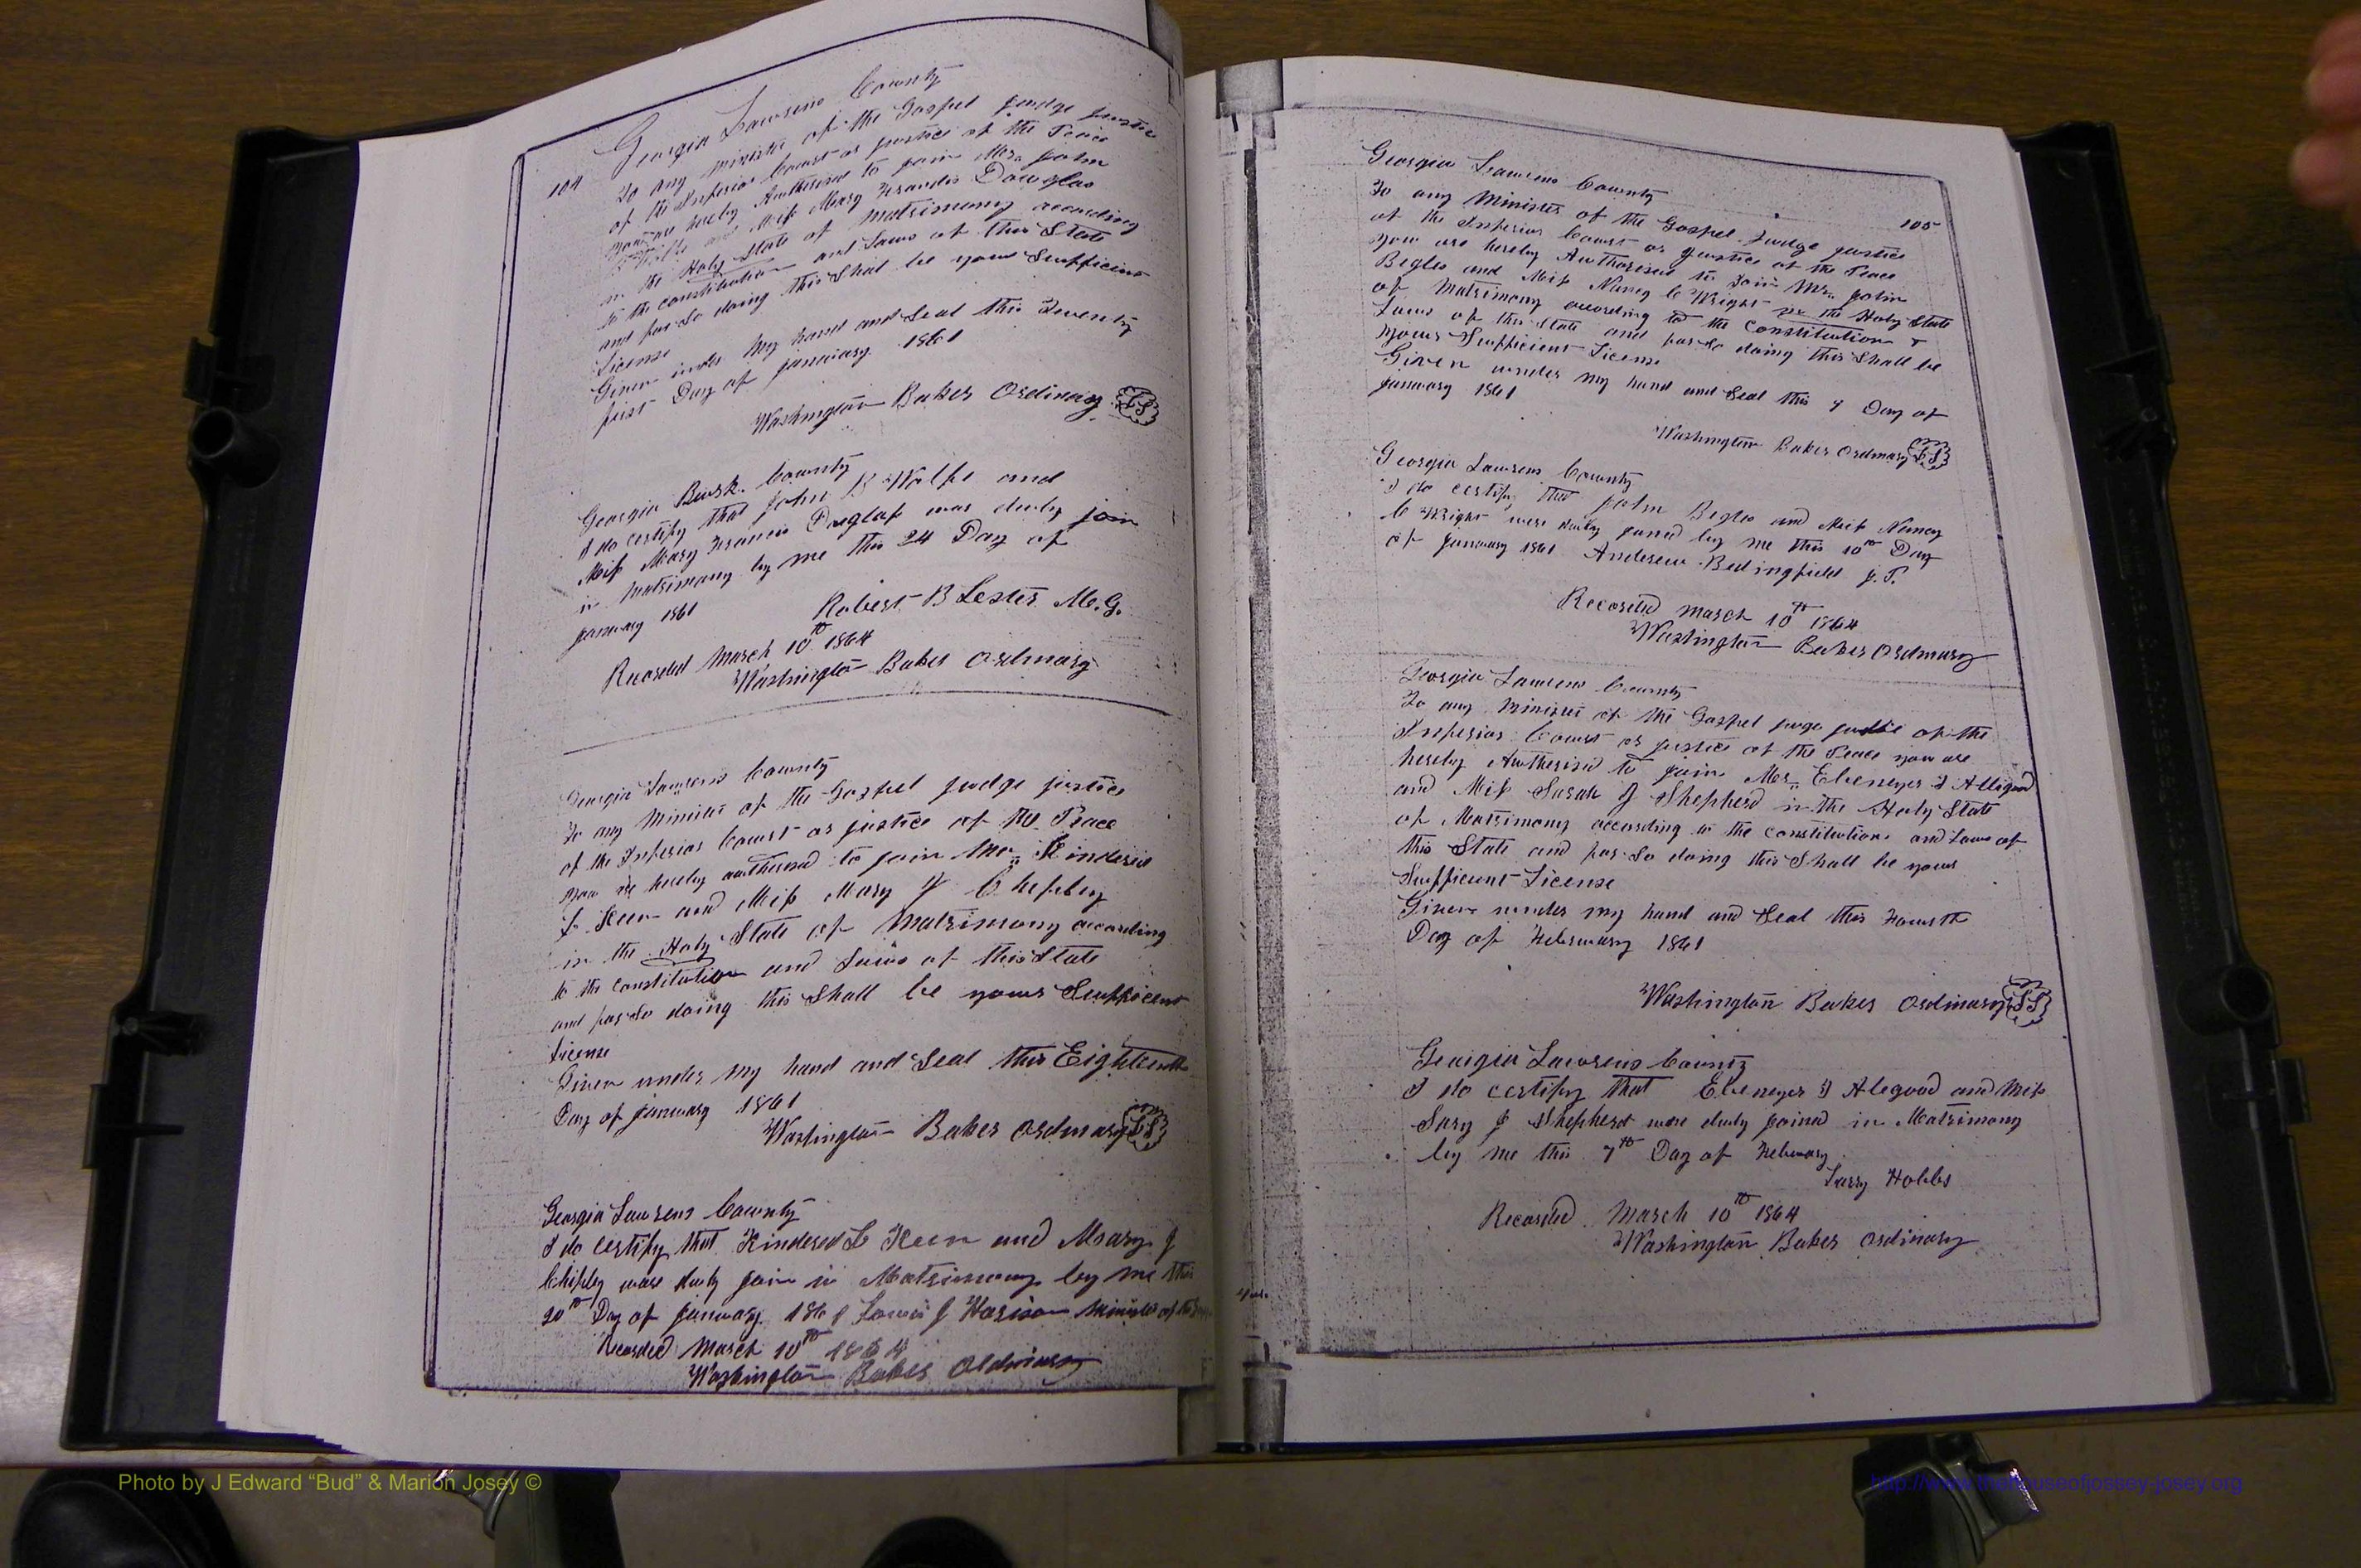 104
Georgia Lawrens County
To any minister of the Gospel judge justice
of the Inferior Court or justice of the Peace
you are hereby Autherised to join Mr. John
B Wolfe and Miss Mary Francis Douglas
in the Holy State of matrimony according
to the constitution and Laws of this State
and for So doing this Shal be your Sufficient
License
Given under my hand and Seal this Twenty
first Day of january 1861
Washington Baker Ordinary LS
Georgia Burk County
I do certify that John B Wolfe and
Miss Mary Francis Duglass was duly join
in matrimony by me this 24 Day of
january 1861
Robert B Lester M.G.
Recorded March 10th 1864
Washington Baker Ordinary
Georgia Lawrens County
To any Minister of the Gospel judge justice
of the Inferior Court or justice of the Peace
you are hereby autherised to join Mr. Kindered
L Keen and Miss Mary J Chepley
in the Holy State of Matrimony according
to the constitution and Laws of this State
and for So doing this Shall be your Sufficient
License
Given under my hand and Seal this Eighteenth
Day of january 1861
Washington Baker Ordinary LS
Georgia Lawrens County
I do certify that Kindered L Keen and Mary J
Chipley ware duly join in Matrimony by me this
20th Day of january 1861 Lewis J Harison Minister of the
Recorded March 10th 1864
Washington Baker Ordinary
105
Georgia Lawrens County
To any Minister of the Gospel Judge justice
of the Inferior Court or justice of the Peace
you are hereby Authorised to Join Mr. John
Begles and Miss Nancy C Wright in the Holy State
of Matrimony according to the Constitution &
Laws of this State and for So doing this Shall be
your Sufficient License
Given under my hand and Seal this 7 Day of
january 1861
Washington Baker Ordinary LS
Georgia Lawrens County
I do certify that John Begles and Miss Nancy
C Wright were duly joined by me this 10th Day
of january 1861 Anderew Bedingfield J.P.
Recorded March 10th 1864
Washington Baker Ordinary
Georgia Lawrens County
To any Minister of the Gospel juge justice of the
Inferior Court or justice of the Peace you are
hereby Autherised to join Mr. Ebenezer I Alligood
and Miss Sarah J Shepherd in the Holy State
of Matrimony according to the constitution and Laws of
this State and for So doing this Shall be your
Sufficient License
Given under my hand and Seal this Fourth
Day of February 1861
Washington Baker Ordinary LS
Georgia Lawrens County
I do certify that Ebenezer I Alegood and Miss
Sary J Shepherd were duly joined in Matrimony
by me this 7th Day of February
Larry Hobbs
Recorded March 10th 1864
Washington Baker Ordinary
Photo by J Edward “Bud” & Marion Josey ©
http://www.thehouseofjossey-josey.org